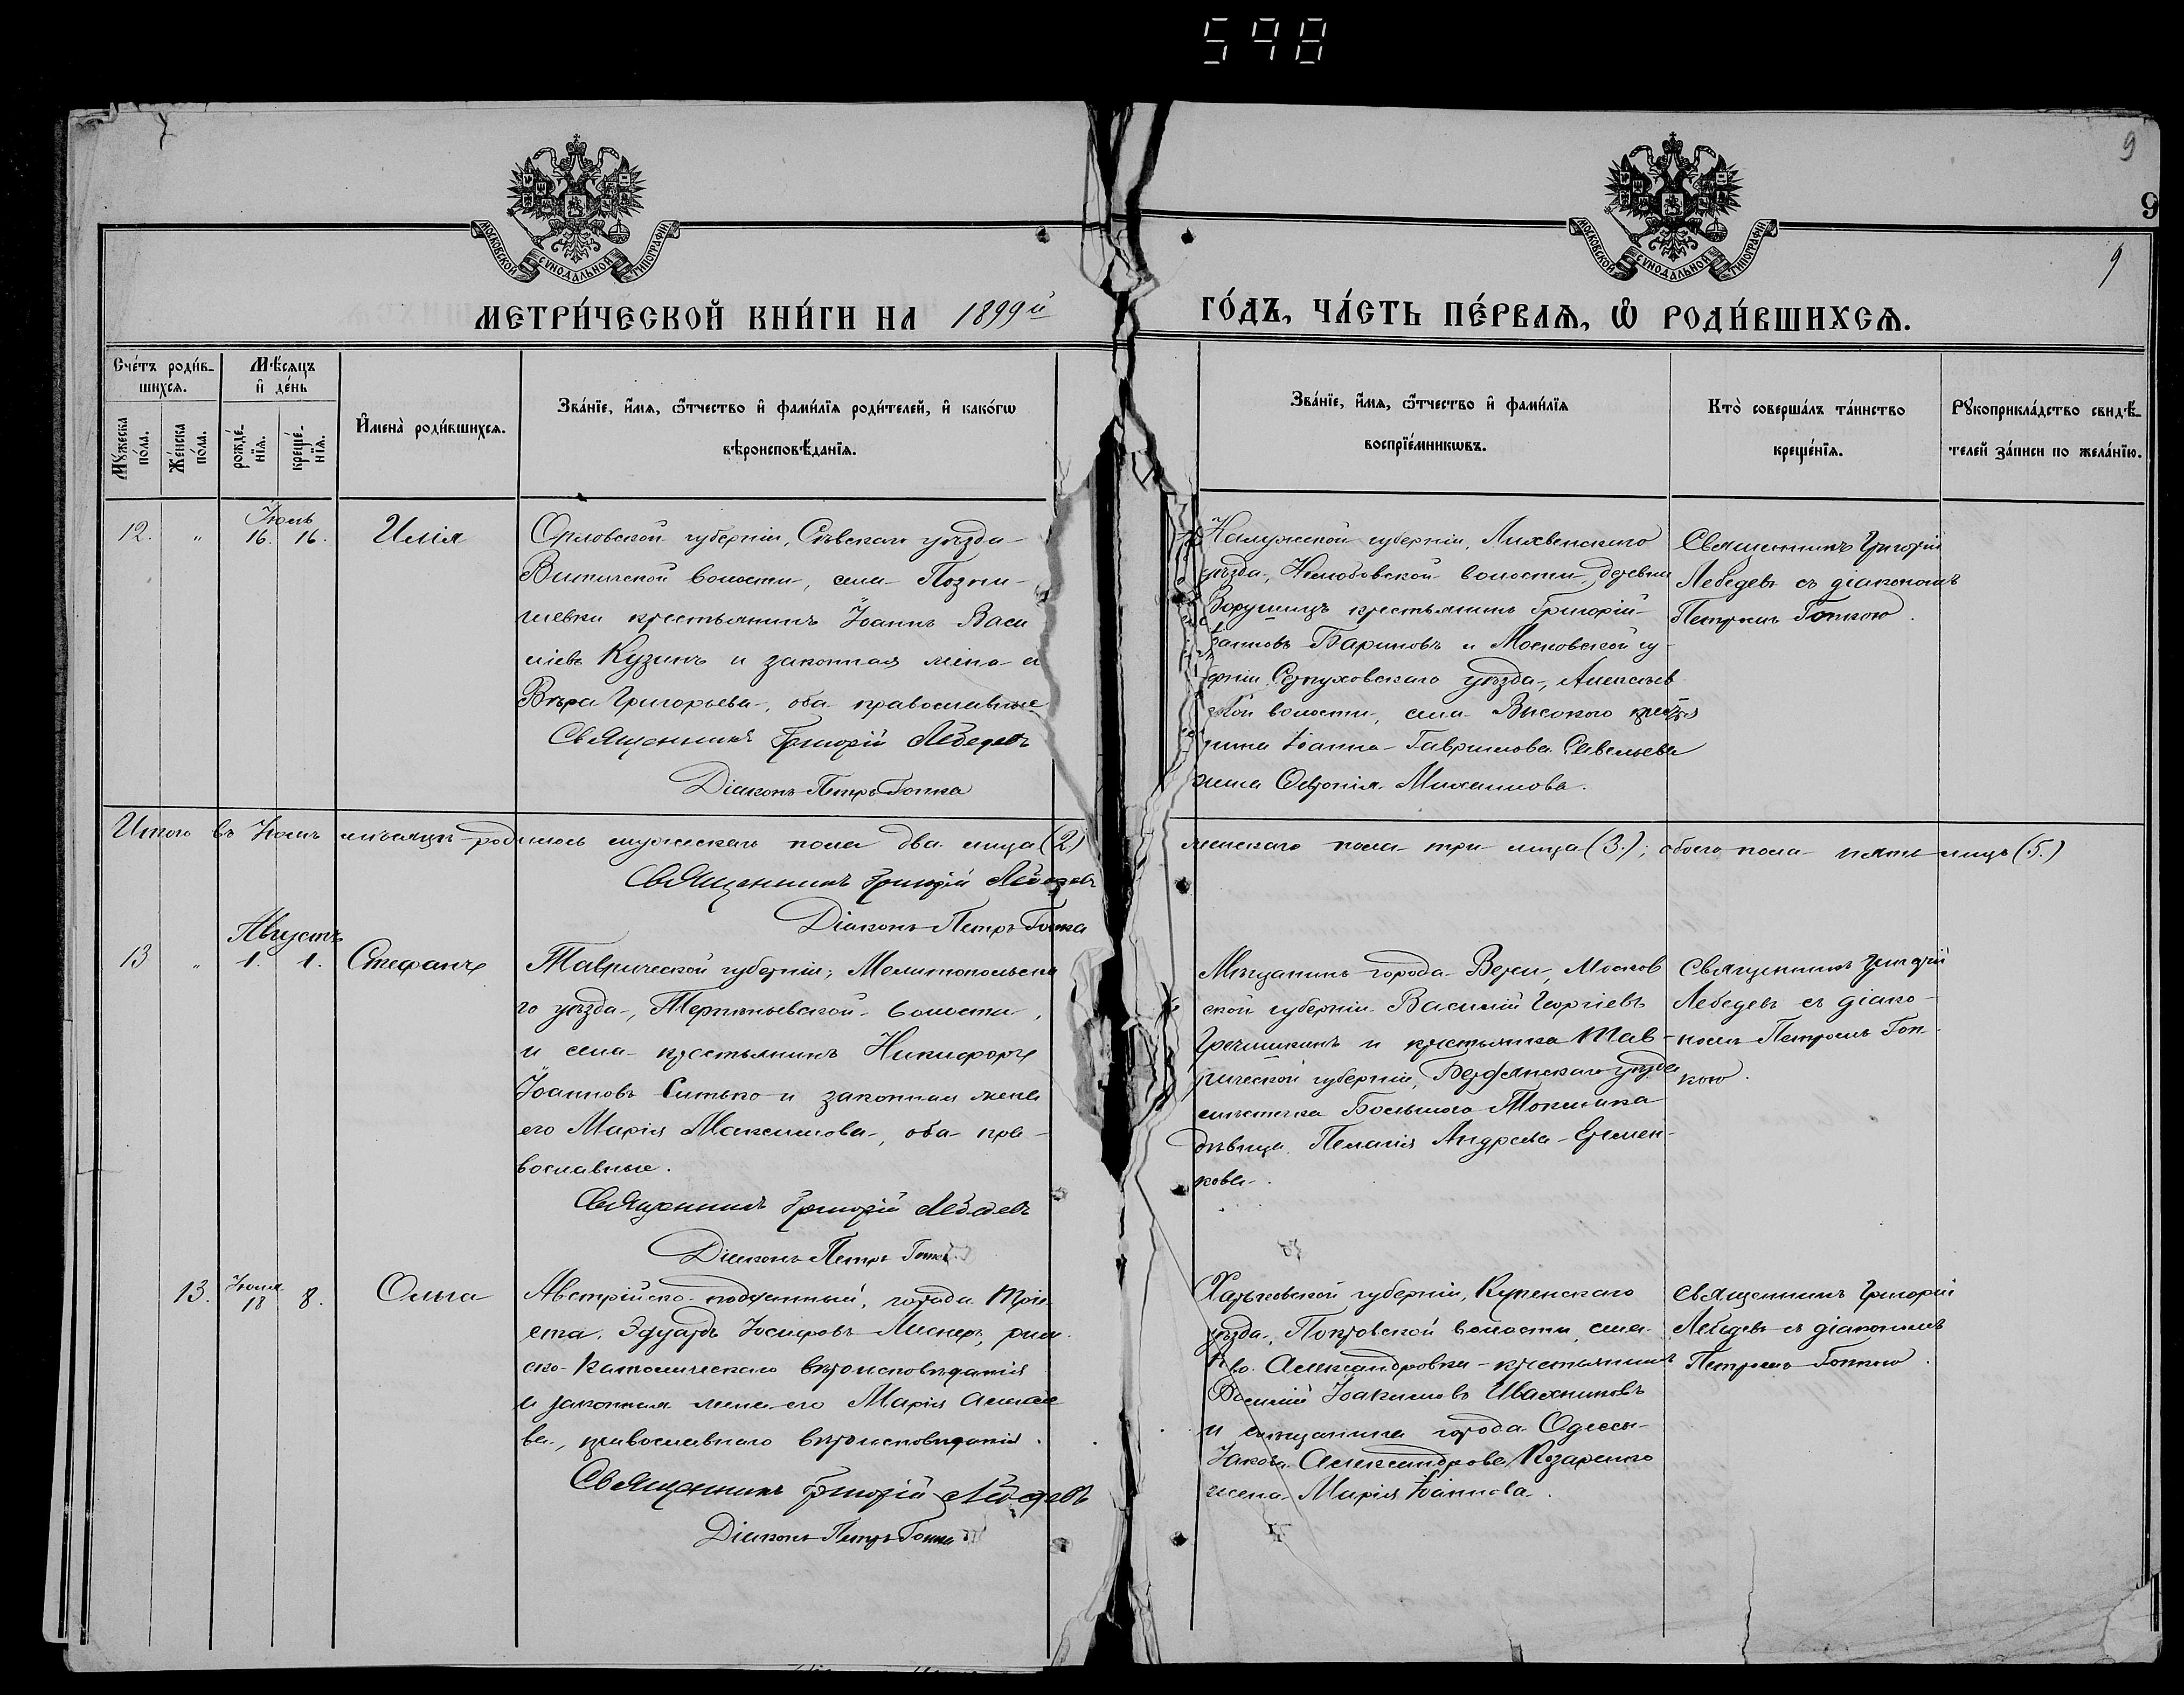 598
9
9
9
МОСКОВСКОЙ СѴНОДАЛЬНОЙ ТИПОГРАФІИ
МОСКОВСКОЙ СѴНОДАЛЬНОЙ ТИПОГРАФІИ
МЕТРИ́ЧЕСКОЙ КНИ́ГИ НА 1899й
ГО́ДЪ, ЧА́СТЬ ПЕ́РВАѦ, Ѡ҆ РОДИ́ВШИХСѦ.
Сче́тъ роди́в-
шихсѧ.
Мѣ́сѧцъ
и҆ де́нь
Мꙋ́жеска
по́ла.
Же́нска
по́ла.
рожде́-
нїѧ.
креще́-
нїѧ.
И҆мена̀ роди́вшихсѧ.
Зва́нїе, и҆́мѧ, ѻ҆́тчество и҆ фами́лїѧ роди́телей, и҆ како́гѡ
вѣроисповѣ́данїѧ.
Зва́нїе, и҆́мѧ, ѻ҆́тчество и҆ фами́лїѧ
воспрїе́мникѡвъ.
Кто̀ соверша́лъ та́инство
креще́нїѧ.
Рꙋкоприкла́дство свидѣ́-
телей за́писи по жела́нїю.
Іюль
12. " 16. 16. Илія
Орловской губерніи, Сѣвскаго уѣзда
волости, села
крестьянинъ Іоаннъ Васи
ліевъ Кузинъ и законная жена е
Вѣра Григорьева, оба православные
Священникъ Григорій Лебедевъ
Діаконъ Петръ Гопка
Калужской губерніи, Лихвенскаго
уѣзда, волости, деревни
крестьянинъ Григорій
Бариновъ и Московской гу
Серпуховскаго уѣзда, Алексѣев
ской волости, села Высокого
Іоанна Гаврилова Савельева
жена Михаилова.
Священникъ Григорій
Лебедевъ съ діакономъ
Петромъ Гопкою.
Итого въ Іюлѣ мѣсяцѣ родилось мужескаго пола два лица (2)
женскаго пола три лица (3.); обоего пола пять лицъ (5.)
Священникъ Григорій Лебедевъ
Діаконъ Петръ Гопка
Августъ
13 " 1. 1. Стефанъ
Таврической губерніи, Мелитопольска
го уѣзда, волости,
и села крестьянинъ Никифоръ
Іоанновъ Ситько и законная жена
его Марія Максимова, оба пра-
вославные.
Священникъ Григорій Лебедевъ
Діаконъ Петръ Гопка
Мѣщанинъ города Вереи, Москов
ской губерніи Василій Георгіевъ
Гречишкинъ и крестьянка Тав-
рической губерніи, Бердянскаго уѣзда
мѣстечка Большого Токмака
дѣвица Пелагія Андреева Еремен-
кова.
Священникъ Григорій
Лебедевъ съ діако-
номъ Петромъ Гоп-
кою.
13. Іюля 18 8. Ольга
Австрійско-подданный, города Трі
еста, Эдуардъ Іосифовъ рим-
ско-католическаго вѣроисповѣданія
и законная жена его Марія
ва, православнаго вѣроисповѣданія.
Священникъ Григорій Лебедевъ
Діаконъ Петръ Гопка
Харьковской губерніи, Купенскаго
уѣзда, Покровской волости, села
Ново-Александровки крестьянинъ
Василій Іоакимовъ Ивахниковъ
и мѣщанина города Одессы
Іакова Александрова Козаренко
жена Марія Іоаннова.
Священникъ Григорій
Лебедевъ съ діакономъ
Петромъ Гопкою.